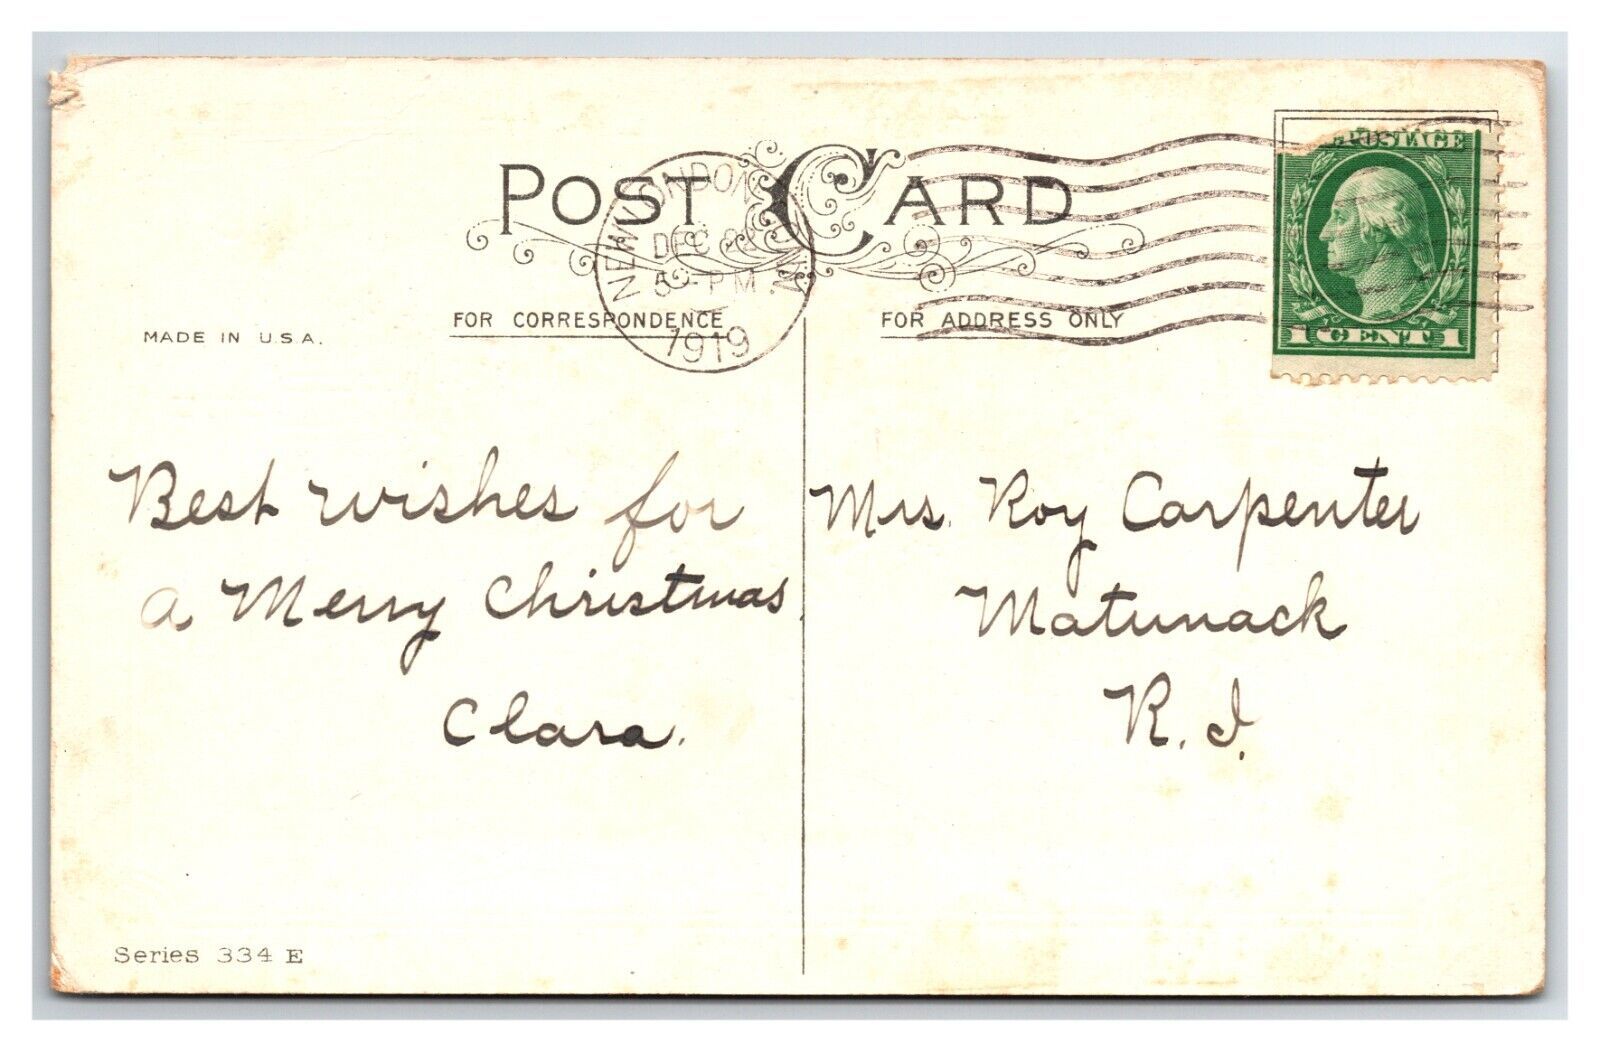 POST CARD
NEW LONDON
DEC 22
5-PM
1919
POSTAGE
1 CENT 1
MADE IN U.S.A.
FOR CORRESPONDENCE
FOR ADDRESS ONLY
Best wishes for
a Merry Christmas.
Clara.
Mrs. Roy Carpenter
Matunack
R. I.
Series 334 E